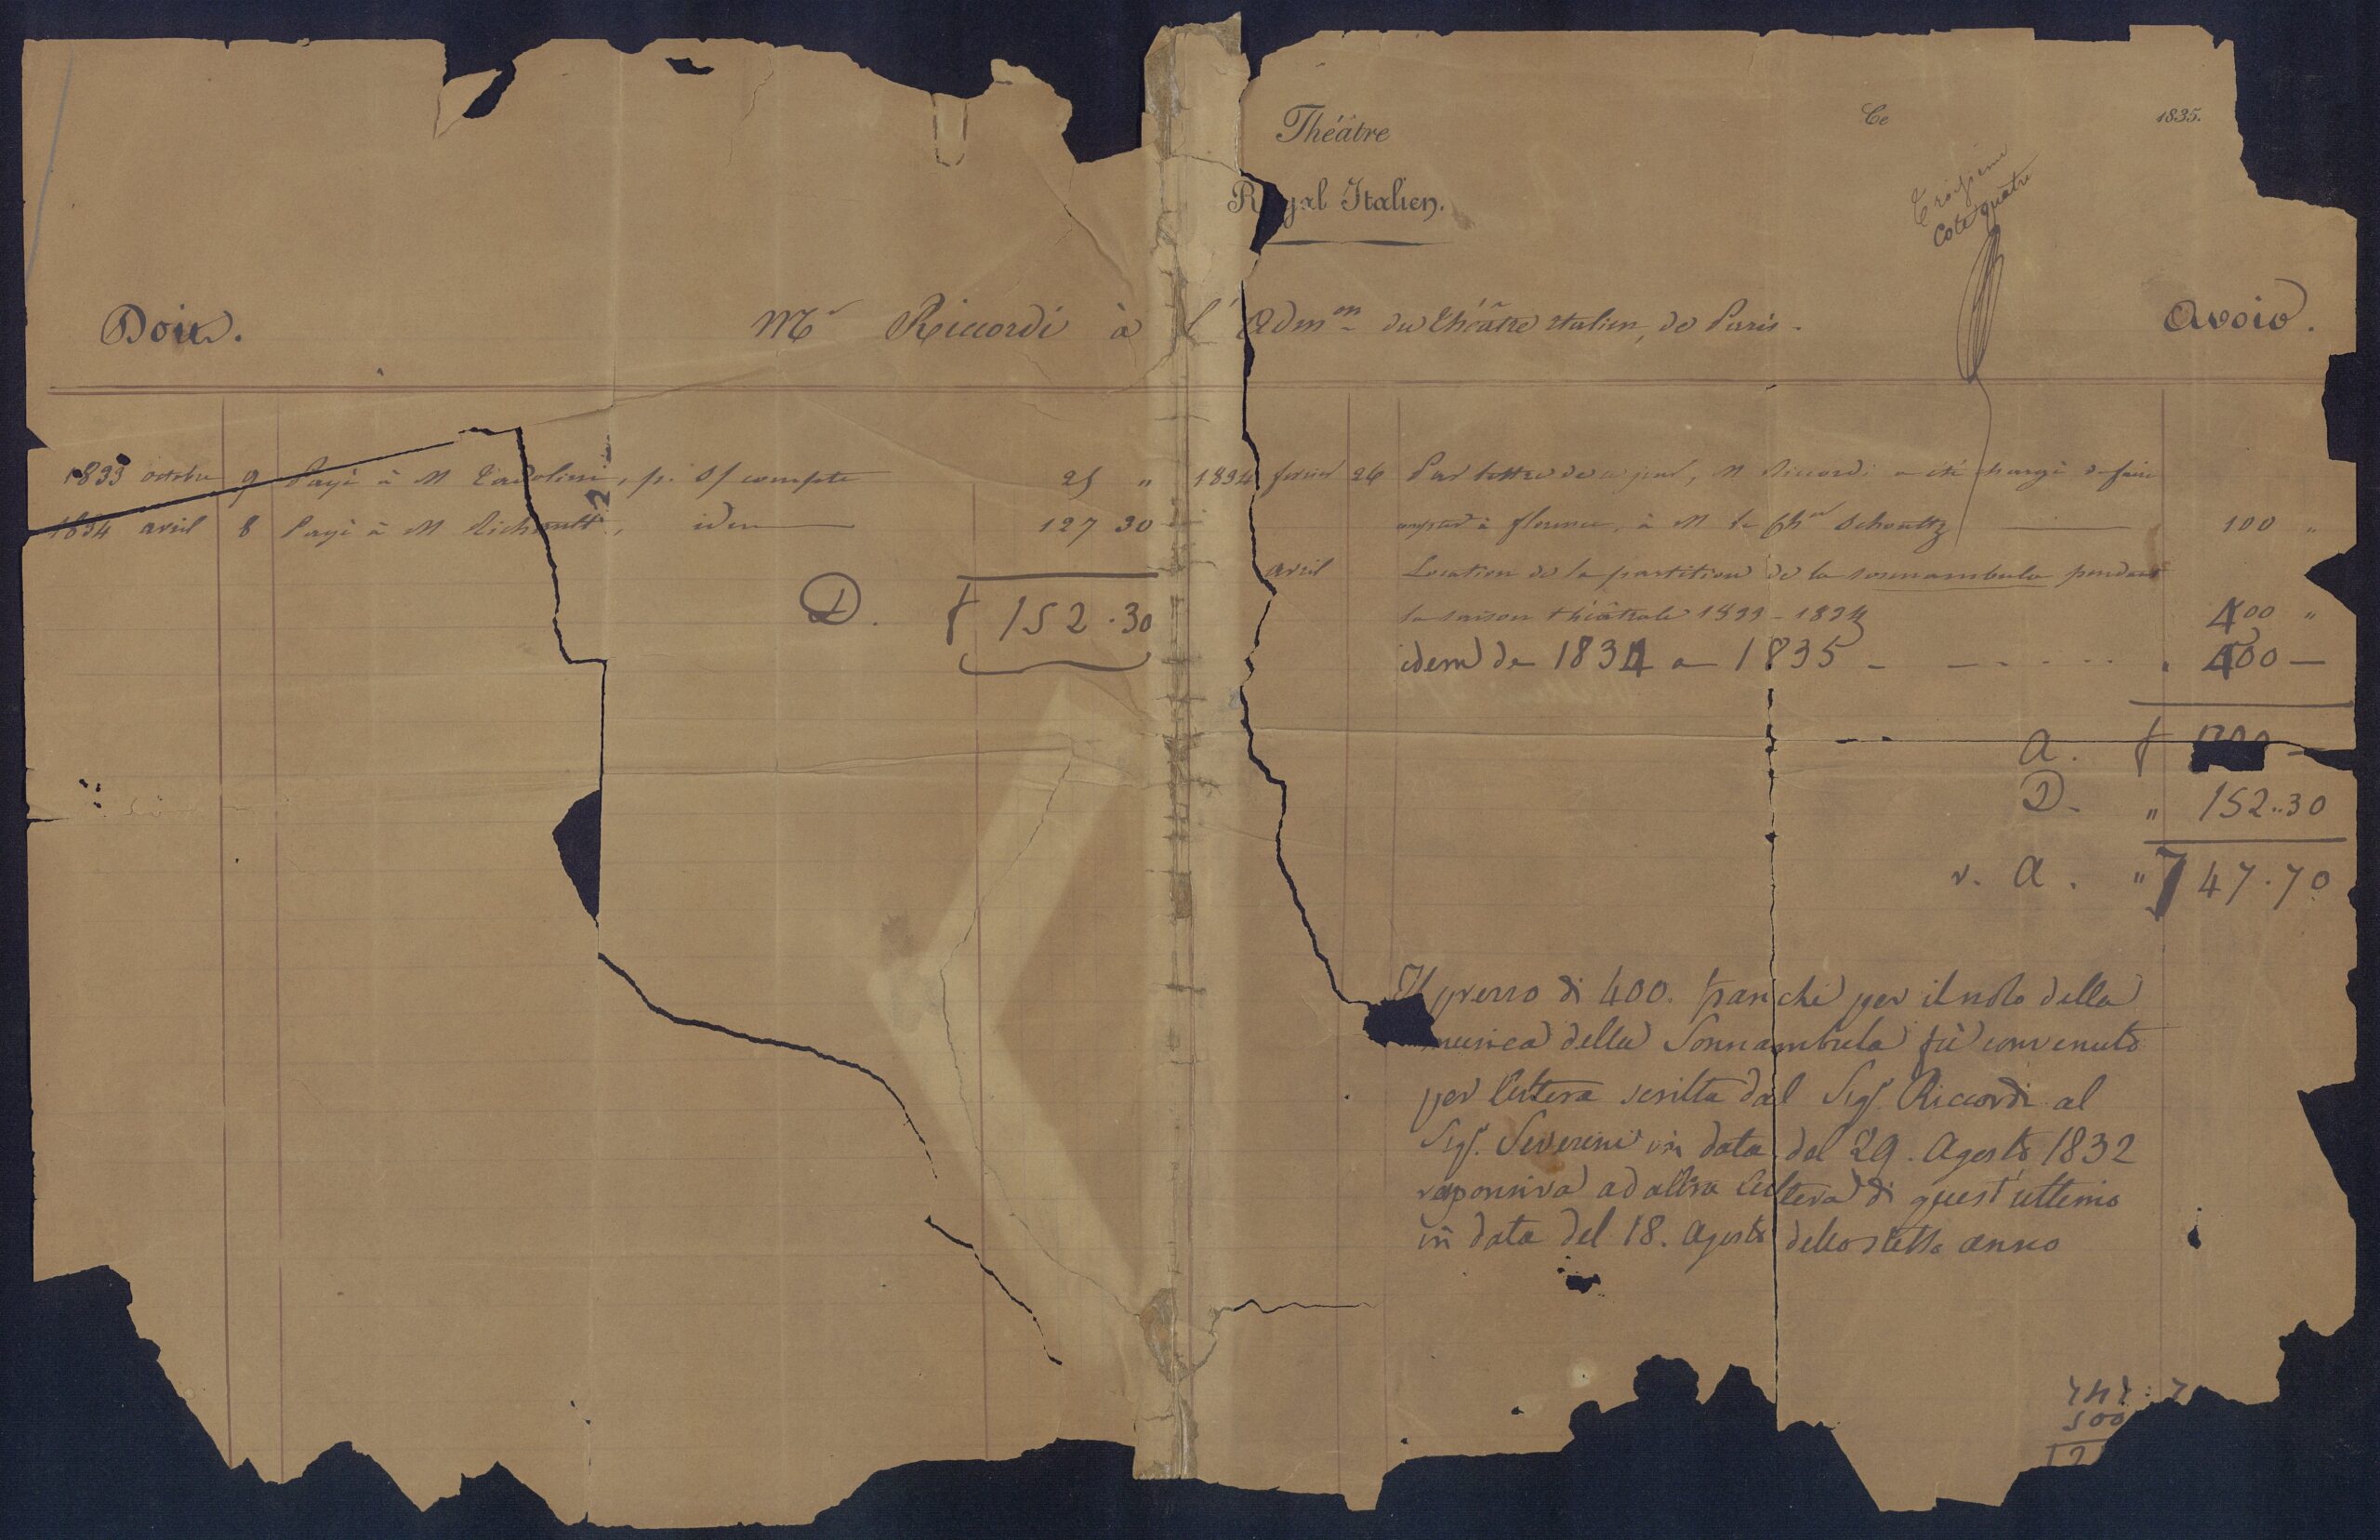 Théâtre
Royal Italien.
Ce 1835.
Troisième
Cote quatre
Doit. Mr Riccordi à l'Admon du Théâtre Italien, de Paris. Avoir.
1833 octobre 9 Payé à M Tadolini, p. s/ compte 25 "
1834 avril 8 Payé à M Richault, idem 127 30
D. f 152.30
1834 février 26 Par lettre de ce jour, M Riccordi a été chargé de faire
compter à florence, à M le Chr Schoultz 100 "
avril Location de la partition de la sonnambula pendant
la saison théâtrale 1833-1834 400 "
idem de 1834 a 1835 - 400 —
A. f
D. " 152..30
r. A. " 747.70
Il prezzo di 400. franchi per il nolo della
musica della Sonnambula fù convenuto
per lettera scritta dal Sigr. Riccordi al
Sigr. Severini in data del 29. Agosto 1832
responsiva ad altra lettera di quest'ultimo
in data del 18. Agosto dello stesso anno
747:7
500
2